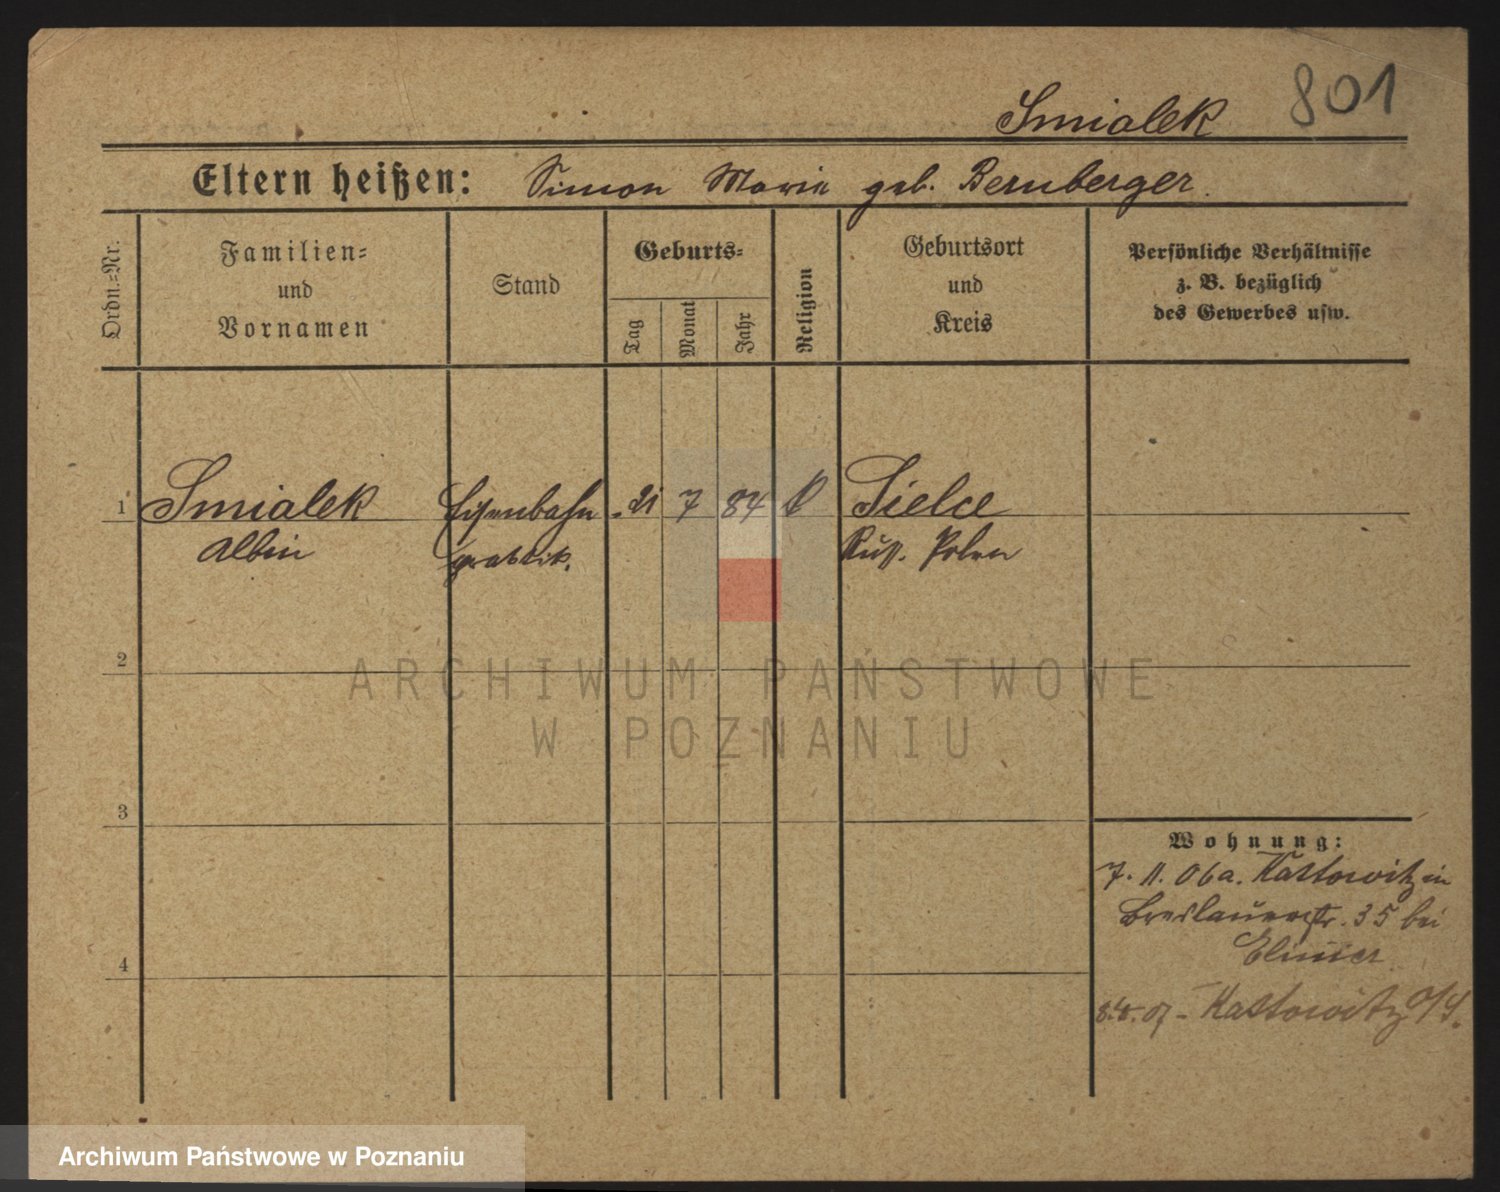 Smialek 801
Eltern heißen: Simon Marie geb. Bernberger.
Ordn.-Nr.
Familien-
und
Vornamen
Stand
Geburts-
Tag
Monat
Jahr
Religion
Geburtsort
und
Kreis
Persönliche Verhältnisse
z. B. bezüglich
des Gewerbes usw.
1 Smialek Eisenbahn 21 7 84 k Sielce
Albin praktik. Russ. Polen
2
ARCHIWUM PAŃSTWOWE
W POZNANIU
3
Wohnung:
7. 11. 06 a. Kattowitz in
Breslauerstr. 35 bei
4
Kattowitz O/S.
Archiwum Państwowe w Poznaniu